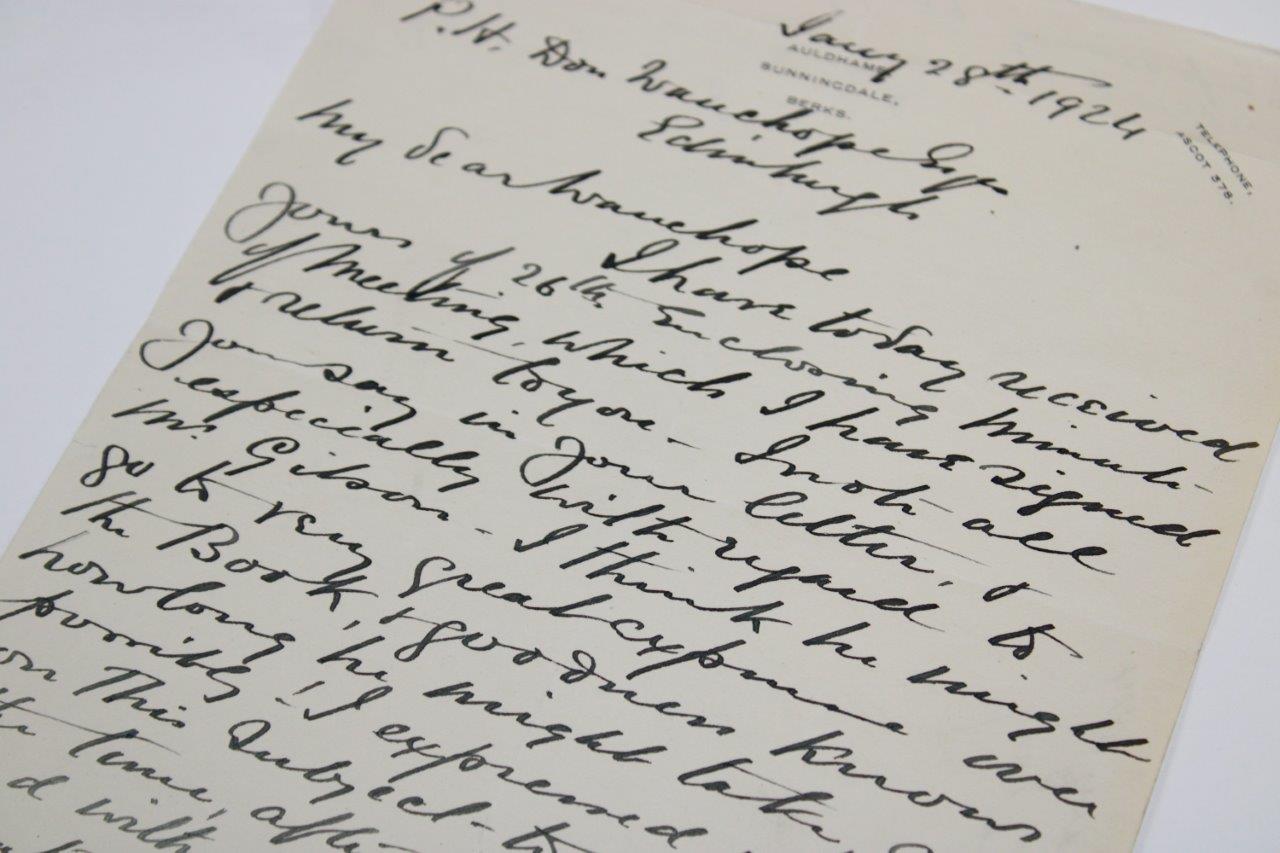 Jany 28th 1924
AULDHAME
SUNNINGDALE,
BERKS.
TELEPHONE,
ASCOT 378.
P. H. Don Wauchope Esq
Edinburgh
My dear Wauchope
I have today received
Yours of 26th Enclosing Minute
of Meeting, which I have signed
& return to you - I note all
You say in Your letter, &
especially with regard to
Mr Gibson - I think he might
go to very great expense over
the Book, & goodness knows
how long he might take
possibly! I expressed
on This Subject - to
the time, after
d with